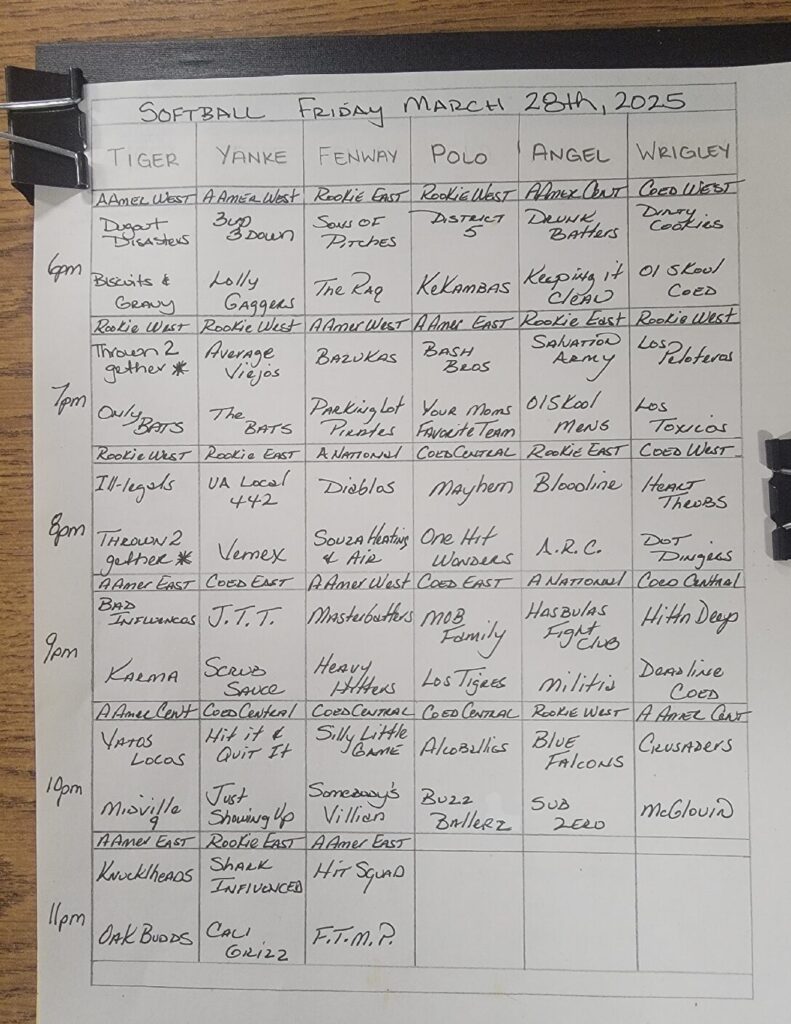 SOFTBALL FRIDAY MARCH 28th, 2025
TIGER YANKE FENWAY POLO ANGEL WRIGLEY
AAMER WEST AAMER WEST ROOKIE EAST ROOKIE WEST AAMER CENT COED WEST
Dugout 3up SONS OF DISTRICT DRUNK DIRTY
DISASTERS 3 DOWN PITCHES 5 BATTERS COOKIES
6pm
BISCUITS & Lolly The RAQ KEKAMBAS KEEPING it Ol SKOOL
GRAVY GAGGERS CLEAN COED
ROOKIE WEST ROOKIE WEST AAMER WEST AAMER EAST ROOKIE EAST ROOKIE WEST
THROWN 2 AVERAGE BAZUKAS BASH SALVATION LOS
gether * Viejos BROS ARMY Peloteros
7pm
ONLY The PARKING LOT YOUR MOMS Ol SKOOL LOS
BATS BATS PIRATES FAVORITE TEAM MENS TOXICOS
ROOKIE WEST ROOKIE EAST A NATIONAL COED CENTRAL ROOKIE EAST COED WEST
Ill-legals UA LOCAL Diablos Mayhem Bloodline HEART
442 THROBS
8pm
THROWN 2 Vemex SOUZA HEATING One Hit A.R.C. DOT
gether * & AIR WONDERS DINGERS
AAMER EAST COED EAST AAMER WEST COED EAST A NATIONAL COED CENTRAL
BAD J.T.T. Masterbatters MOB HASBULAS HITTN DEEP
INFLUENCAS Family FIGHT
CLUB
9pm
KARMA SCRUB HEAVY LOS TIGRES Militia DEADLINE
SAUCE HITTERS COED
AAMER CENT COED CENTRAL COED CENTRAL COED CENTRAL ROOKIE WEST A AMER CENT
VATOS Hit it & SILLY LITTLE Alcoballics BLUE CRUSADERS
LOCOS QUIT IT GAME FALCONS
10pm
MIDVILLE Just Somebody's BUZZ SUB McGLOVIN
9 Showing Up Villian BALLERZ ZERO
AAMER EAST ROOKIE EAST AAMER EAST
KNUCKLHEADS SHARK HIT SQUAD
INFLUENCED
11pm
OAK BUDDS CALI F.T.M.P.
GRIZZ